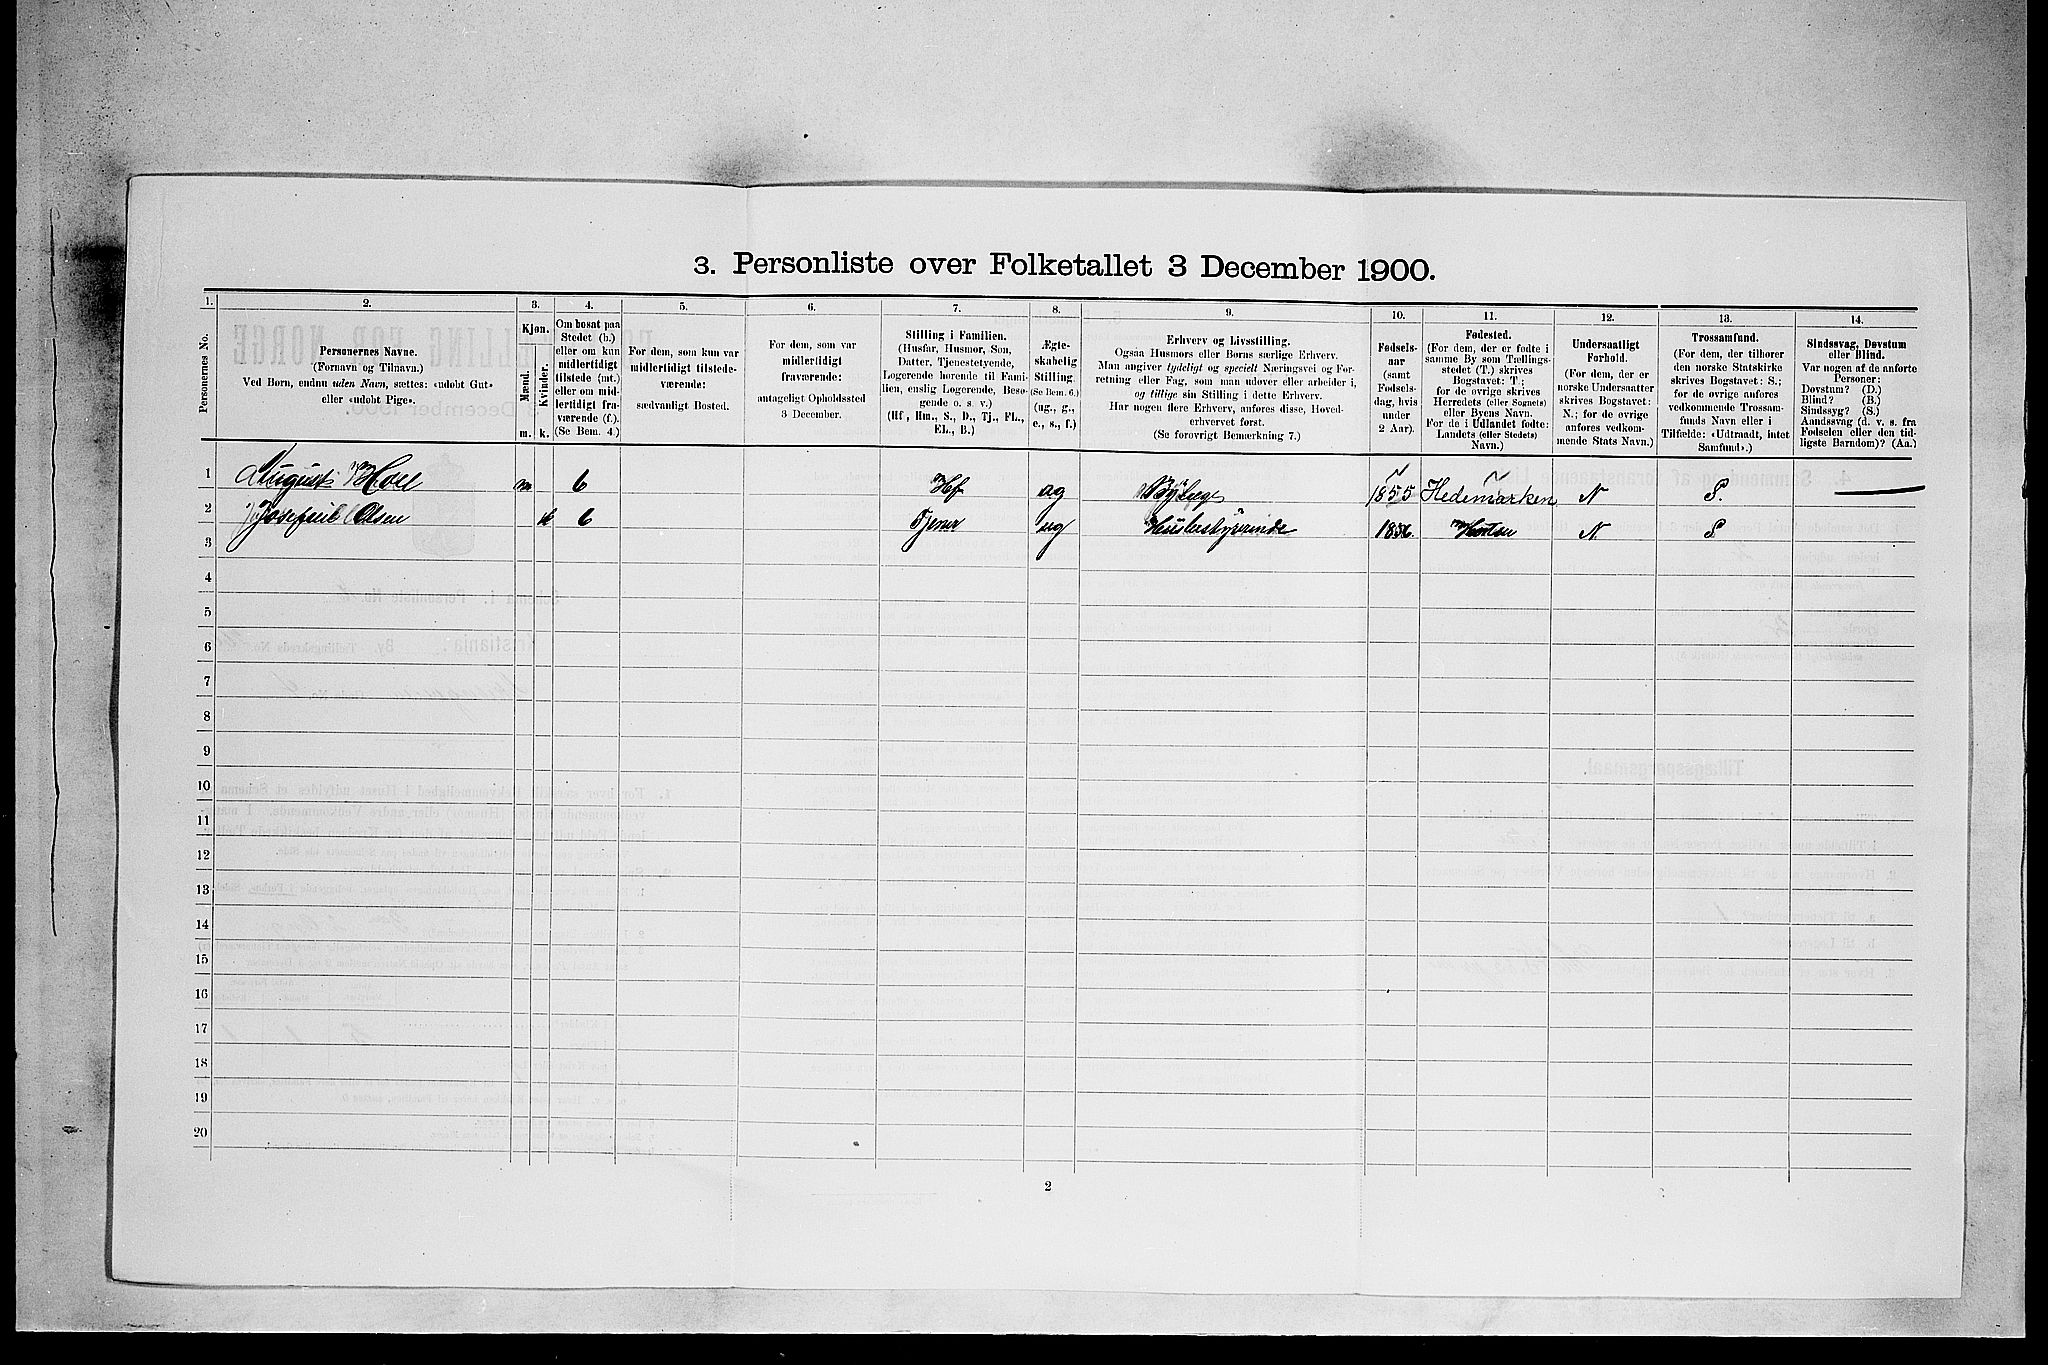 3. Personliste over Folketallet 3 December 1900.
1. 2. 3. 4. 5. 6. 7. 8. 9. 10. 11. 12. 13. 14.
Personernes No.
Personernes Navne.
(Fornavn og Tilnavn.)
Ved Børn, endnu uden Navn, sættes: «udøbt Gut»
eller «udøbt Pige».
Kjøn.
Mænd.
Kvinder.
m. k.
Om bosat paa
Stedet (b.)
eller om kun
midlertidigt
tilstede (mt.)
eller om mid-
lertidigt fra-
værende (f.).
(Se Bem. 4.)
For dem, som kun var
midlertidigt tilstede-
værende:
sædvanligt Bosted.
For dem, som var
midlertidigt
fraværende:
antageligt Opholdssted
3 December.
Stilling i Familien.
(Husfar, Husmor, Søn,
Datter, Tjenestetyende,
Logerende hørende til Fami-
lien, enslig Logerende, Besø-
gende o. s. v.)
(Hf, Hm., S., D., Tj., FL.,
EL., B.)
Ægte-
skabelig
Stilling.
(Se Bem. 6.)
(ug., g.,
e., s., f.)
Erhverv og Livsstilling.
Ogsaa Husmors eller Børns særlige Erhverv.
Man angiver tydeligt og specielt Næringsvei og For-
retning eller Fag, som man udøver eller arbeider i,
og tillige sin Stilling i dette Erhverv.
Har nogen flere Erhverv, anføres disse, Hoved-
erhvervet først.
(Se forøvrigt Bemærkning 7.)
Fødsels-
aar
(samt
Fødsels-
dag, hvis
under
2 Aar).
Fødested.
(For dem, der er fødte i
samme By som Tællings-
stedet (T.) skrives
Bogstavet: T.;
for de øvrige skrives
Herredets (eller Sognets)
eller Byens Navn.
For de i Udlandet fødte:
Landets (eller Stedets)
Navn.)
Undersaatligt
Forhold.
(For dem, der er
norske Undersaatter
skrives Bogstavet:
N.; for de øvrige
anføres vedkom-
mende Stats Navn.)
Trossamfund.
(For dem, der tilhører
den norske Statskirke
skrives Bogstavet: S.;
for de øvrige anføres
vedkommende Trossam-
funds Navn eller i
Tilfælde: «Udtraadt, intet
Samfund».)
Sindssvag, Døvstum
eller Blind.
Var nogen af de anførte
Personer:
Døvstum? (D.)
Blind? (B.)
Sindssyg? (S.)
Aandssvag (d. v. s. fra
Fødselen eller den tid-
ligste Barndom)? (Aa.)
1 August Holl m b Hf ug 1855 Hedemarken N S.
2 Josefine Olsen k b Tjener ug Husbestyrerinde 1856. Horten N S
3
4
5
6
7
8
9
10
11
12
13
14
15
16
17
18
19
20
2